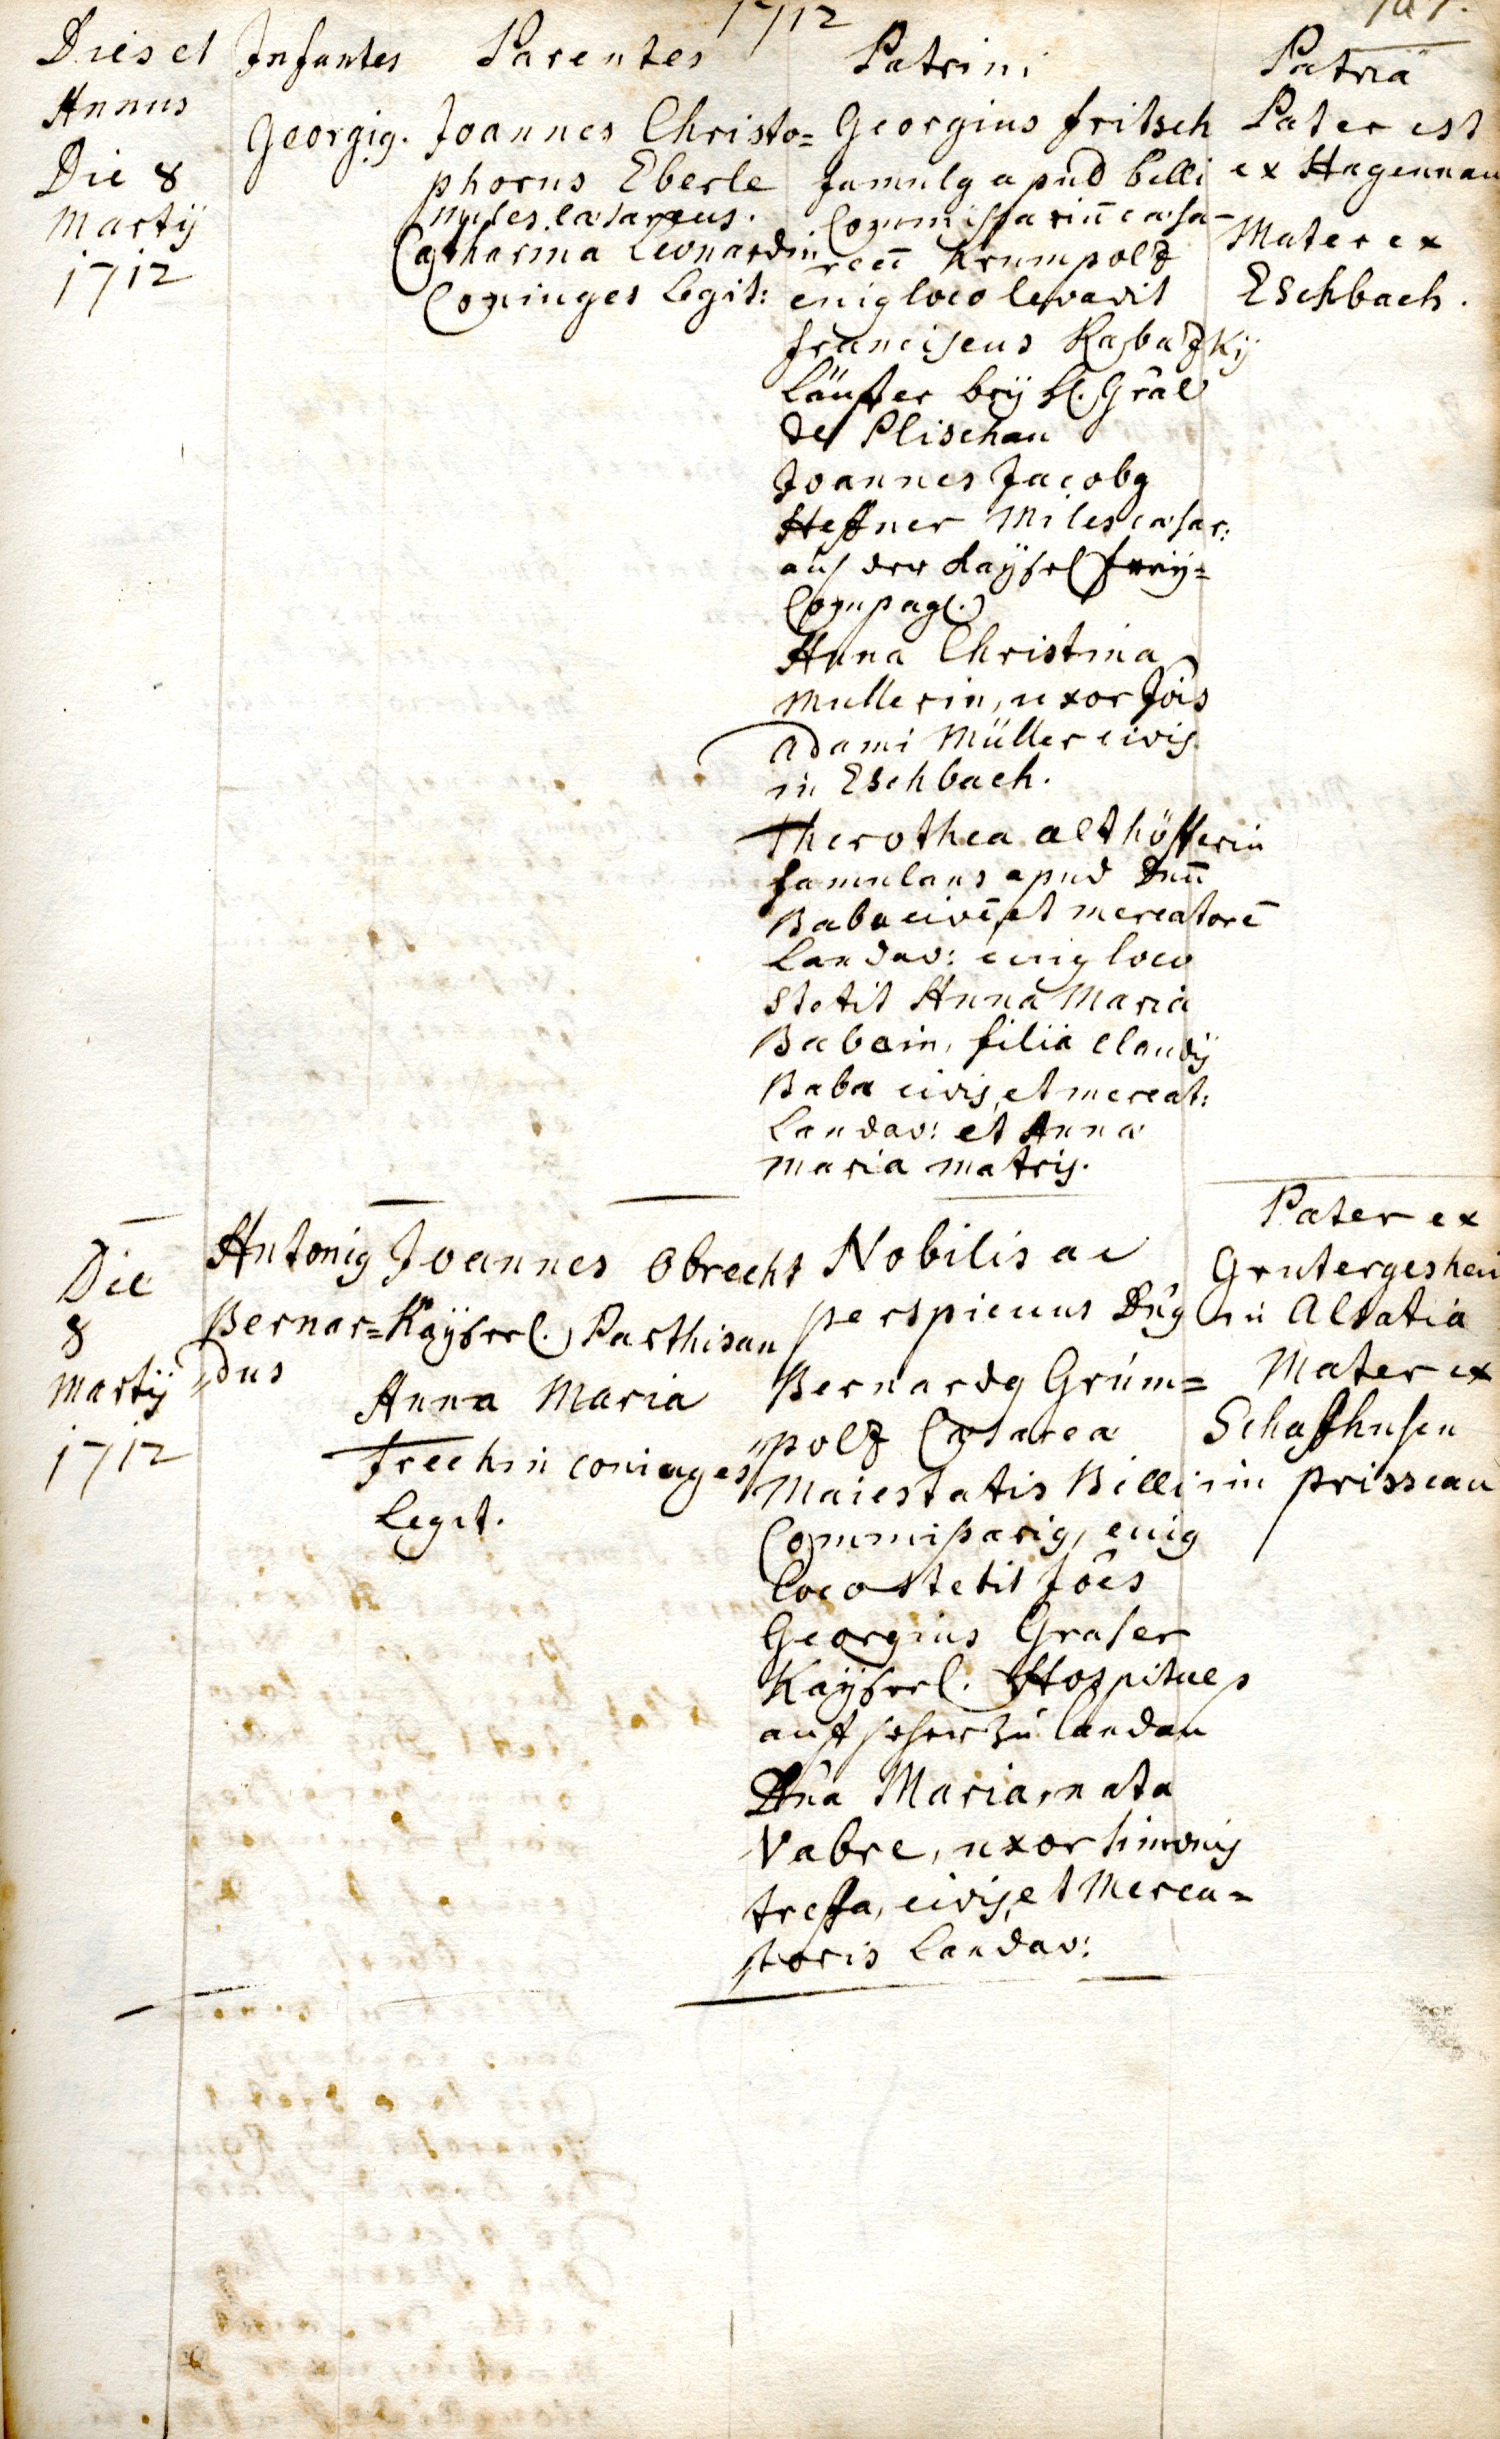 1712
Dies et
Annus
Infantes
Parentes
Patrini
Patria
Die 8
Martij
1712
Georgig.
Joannes Christo=
phorus Eberle
Miles cæsareus.
Catharina Leonardin
Coniuges legit:
Georgius fritsch
famulg apud belli
Commissariū cæsa-
reū Krumpolz
cuig loco levavit
franciscus Rasbazkÿ
Läuffer beÿ H. Graf
de Plischau
Joannes Jacobg
Heffner Miles cæsar:
auß der Kaÿserl. freÿ=
Compag.
Anna Christina
Mullerin, uxor Jois
Adami Müller civis
in Eschbach.
Therothea althöfferin
famulans apud Dnū
Baba civē, et mercatorē
Landav: cuig loco
stetit Anna Maria
Babain, filia Claudij
Baba civis, et mercat:
Landav: et Anna
Maria matris.
Pater est
ex Hagennau
Mater ex
Eschbach.
Die
8
Martij
1712
Antonig
Bernar=
dus
Joannes Obrecht
Kaÿserl. Parthisan
Anna Maria
Frechin coniuges
Legit.
Nobilis ac
perspicuus Dn̄g
Bernardg Grúm=
polz Cæsarea
Maiestatis Belli
Commißarig, cuig
loco stetit Jōes
Georgius Graser
Kaÿserl. Hospitals
auffseher zu landau
Dn̄a Maria, nata
Vabre, uxor simonis
treffa, civis, et Merca=
toris Landav:
Pater ex
Grutergeshei
in Alsatia
Mater ex
Schaffhusen
in prisseau